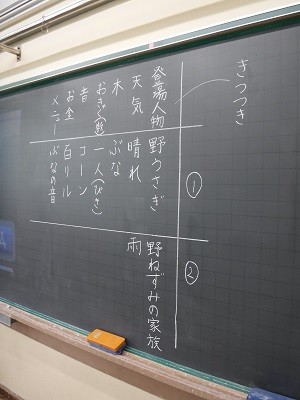 きつつき
①
②
登場人物
野うさぎ
野ねずみの家族
天気
晴れ
雨
木
ぶな
おきゃく(数)
一人(ぴき)
音
コーン
お金
百リル
メニュー
ぶなの音